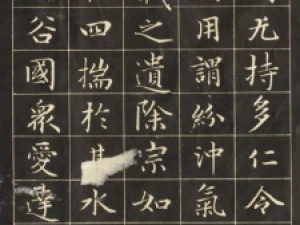 无持多仁令
用謂紛沖氣
之遺除宗如
四揣於水
谷國衆愛達